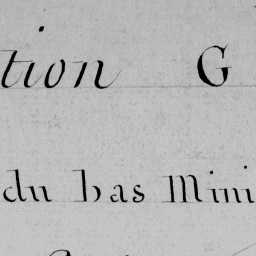 tion G
du bas Mini